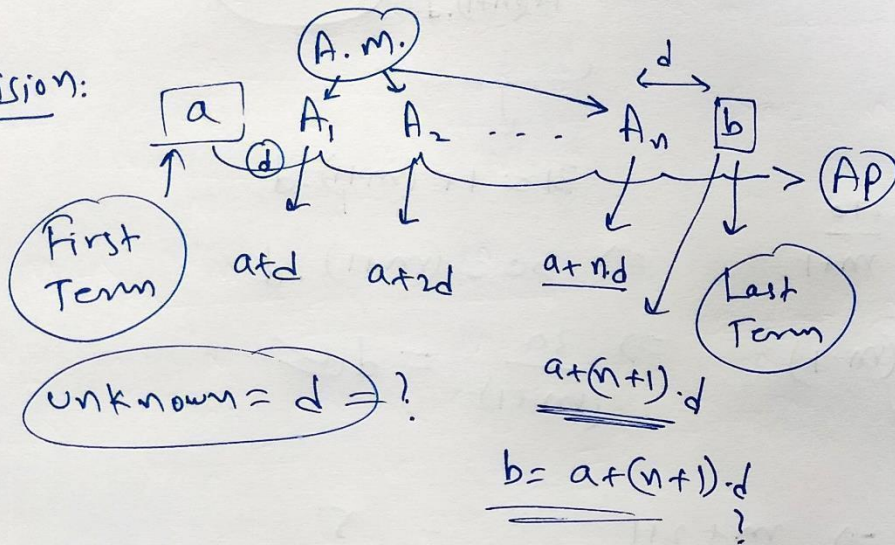 ision:
A.M.
a A₁ A₂ .... Aₙ b
d
d
AP
First
Term
a+d a+2d a+n.d
Last
Term
unknown = d = ?
a+(n+1).d
b = a+(n+1).d
?